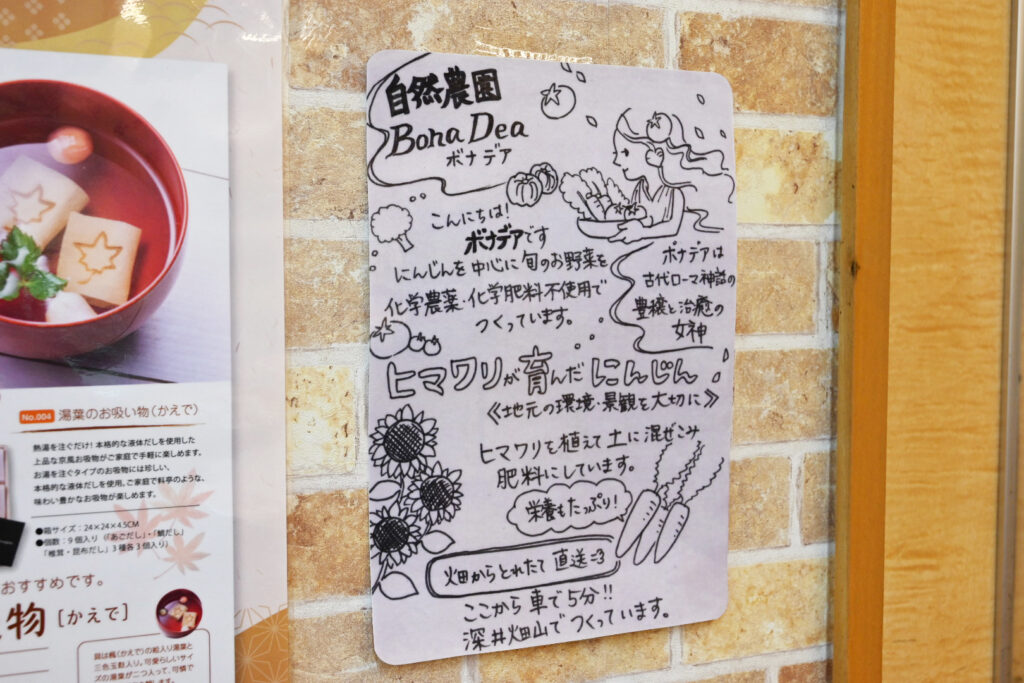 自然農園
Bona Dea
ボナデア
こんにちは!
ボナデアです
にんじんを中心に旬のお野菜を
化学農薬・化学肥料不使用で
つくっています。
ボナデアは
古代ローマ神話の
豊穣と治癒の
女神
ヒマワリが育んだにんじん
《地元の環境・景観を大切に》
ヒマワリを植えて土に混ぜこみ
肥料にしています。
栄養もたっぷり!
畑からとれたて直送
ここから車で5分!!
深井畑山でつくっています。
No.004 湯葉のお吸い物(かえで)
熱湯を注ぐだけ!本格的な液体だしを使用した
上品な京風お吸物がご家庭で手軽に楽しめます。
お湯を注ぐタイプのお吸物には珍しい、
本格的な液体だしを使用。ご家庭で料亭のような、
味わい豊かなお吸物が楽しめます。
●箱サイズ:24×24×4.5CM
●個数:9個入り(「あごだし」・「鯛だし」
「椎茸・昆布だし」3種各3個入り)
おすすめです。
物[かえで]
具は楓(かえで)の絵入り湯葉と
三色玉麩入り。可愛らしいサイ
ズの湯葉が二つ入って、可憐で